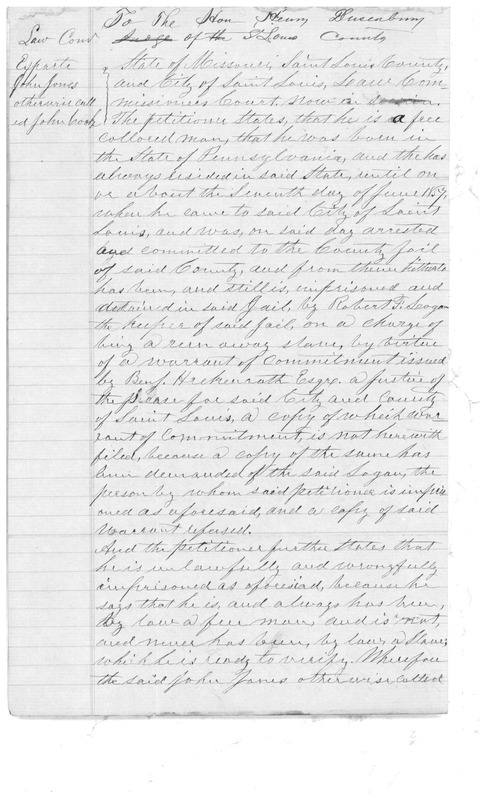 To The Hon Henry Dusenbury
Law Com Judge of the St Louis County
Exparte
John Jones
otherwise call
ed John Cook
State of Missouri, Saint Louis County,
and City of Saint Louis, Law Com
missioners Court, now in
The petitioner States, that he is a free
collored man, that he was born in
the State of Pennsylvania, and the has
always resided in said State, until on
or about the Seventh day of June 1857,
when he came to said City of Saint
Louis, and was, on said day arrested
and committed to the County Jail
of said County, and from thence hitherto
has been, and still is, imprisoned and
detained in said Jail, by Robert F. Logan
the keeper of said jail, on a charge of
being a run away slave, by virtue
of a warrant of Commitment issued
by Benj. Esqre. a justice of
the peace for said City and County
of Saint Louis, a copy of which war
rant of Commitment, is not herewith
filed, because a copy of the same has
been demanded of the said Logan, the
person by whom said petitioner is impris
oned as aforesaid, and a copy of said
warrant refused.
And the petitioner further States that
he is unlawfully and wrongfully
imprisoned as aforesaid, because he
says that he is, and always has been,
by law a free man, and is not,
and never has been, by law, a Slave;
which he is ready to verify. Wherefore
the said John Jones otherwise called